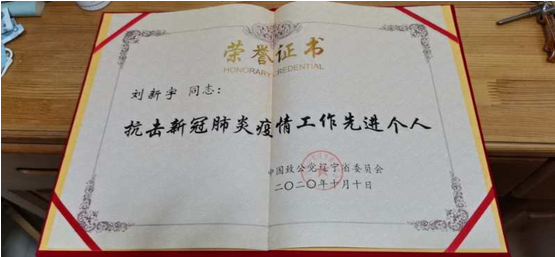 荣誉证书
HONORARY CREDENTIAL
刘新宇 同志：
抗击新冠肺炎疫情工作先进个人
中国致公党辽宁省委员会
二〇二〇年十月十日